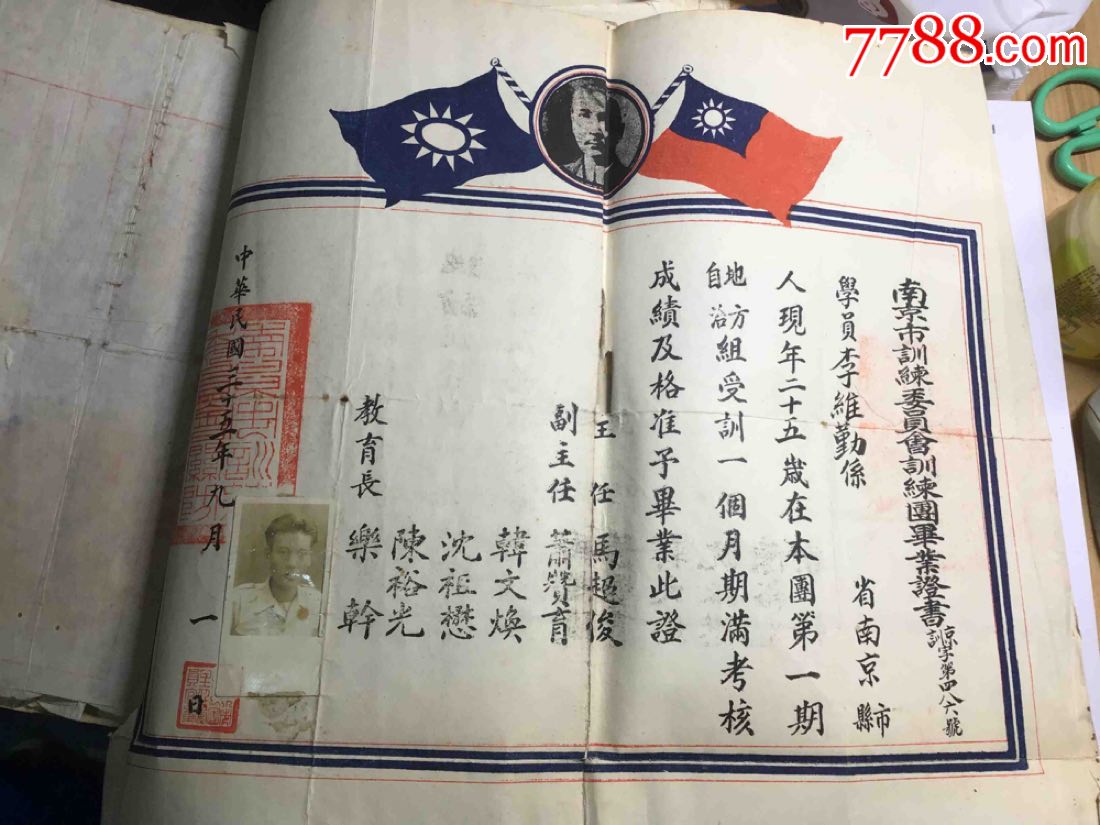 7788.com
南京市訓練委員會訓練團畢業證書
訓京字第四八六號
學員李維勤係 省南京市縣
人現年二十五歲在本團第一期
地方自治組受訓一個月期滿考核
成績及格准予畢業此證
主任 馬超俊
副主任 蕭贊育
韓文煥
沈祖懋
陳裕光
教育長 樂幹
中華民國三十五年九月一日